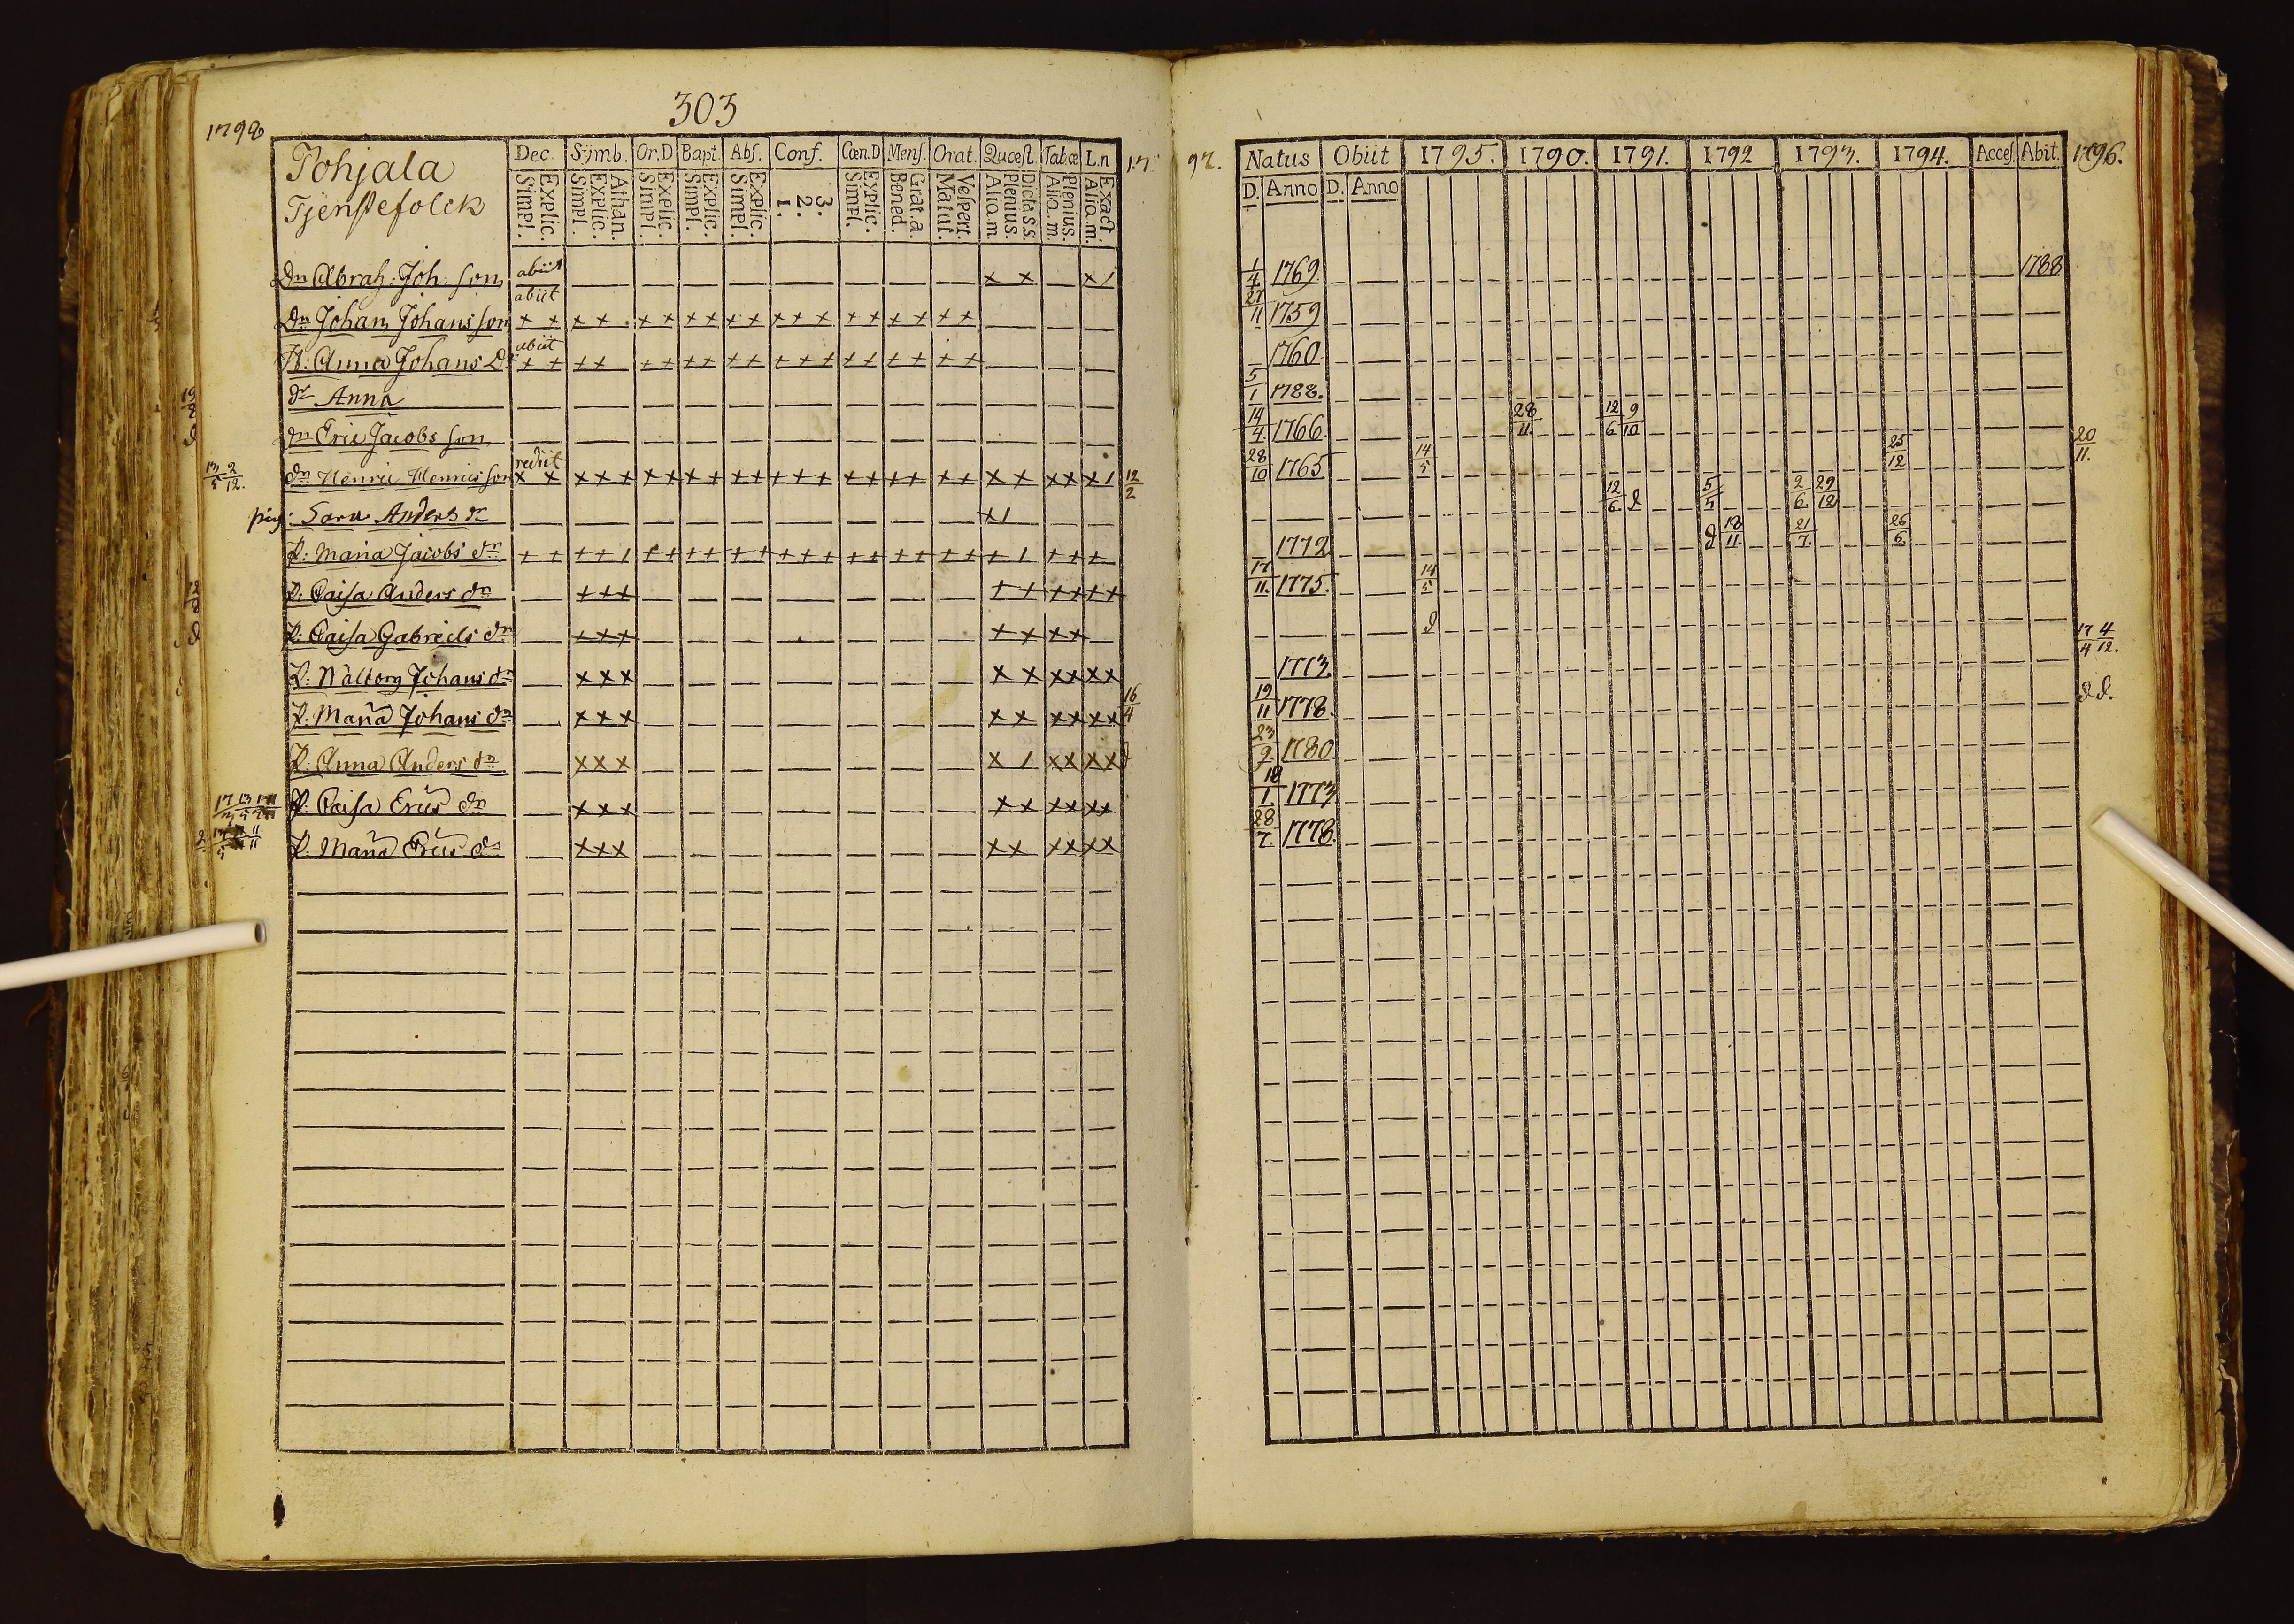 303
1798
Pohjala
Tjenstefolck
Dec. Symb. Or.D Bapt. Abs. Conf. Cœn.D Mens. Orat. Quæst. Tabœ L.n
Simpl. Explic. Simpl. Explic. Athan. Simpl. Explic. Simpl. Explic. Simpl. Explic. 1. 2. 3. Simpl. Explic. Bened. Grat.a. Matut. Vespert. Alio.m. Plenius. Dicta.s s. Alio.m. Plenius. Alio.m. Exact.
Dn Abrah: Joh: son abiit x x x /
Dn Johan Johansson abiit x x x x x x x x x x x x x x x x x x x
H: Anna Johans Dr abiit + + + + + + + + + + + + + + + + + + +
dr Anna
dn Eric Jacobs son
dn Henric Henrics son rediit x x x x x x x x x x x x x x x x x x x x x x x x x /
pig: Sara Anders dr x /
P: Maria Jacobs dr + + + + / + + + + + + + + + + + + + + + + / + + +
P: Caisa Anders dr + + + + + + + + +
P: Caisa Gabriels dr + + + + + + +
P: Walborg Johans dr x x x x x x x x x
P: Maria Johans dr x x x x x x x x x
P: Anna Anders dr x x x x / x x x x
P: Caisa Erics dr x x x x x x x x x
P: Maria Erics dr x x x x x x x x x
17 97.
12/2
16/4
Natus Obiit 1795. 1790. 1791. 1792 1793. 1794. Acces. Abit. 1796.
D. Anno D. Anno
1/4 1769 1788
27/11 1759
1760
5/1 1788.
14/4 1766 28/11. 12/6 9/10
28/10 1765 14/5 25/12 20/11.
12/6 d 5/5 2/6 29/12
1772 d 18/11. 21/7. 26/6.
17/11. 1775. 14/5
d
1773. 17/4 4/12.
19/11 1778. d d.
23/9. 1780
18/1. 1773
28/7. 1778.